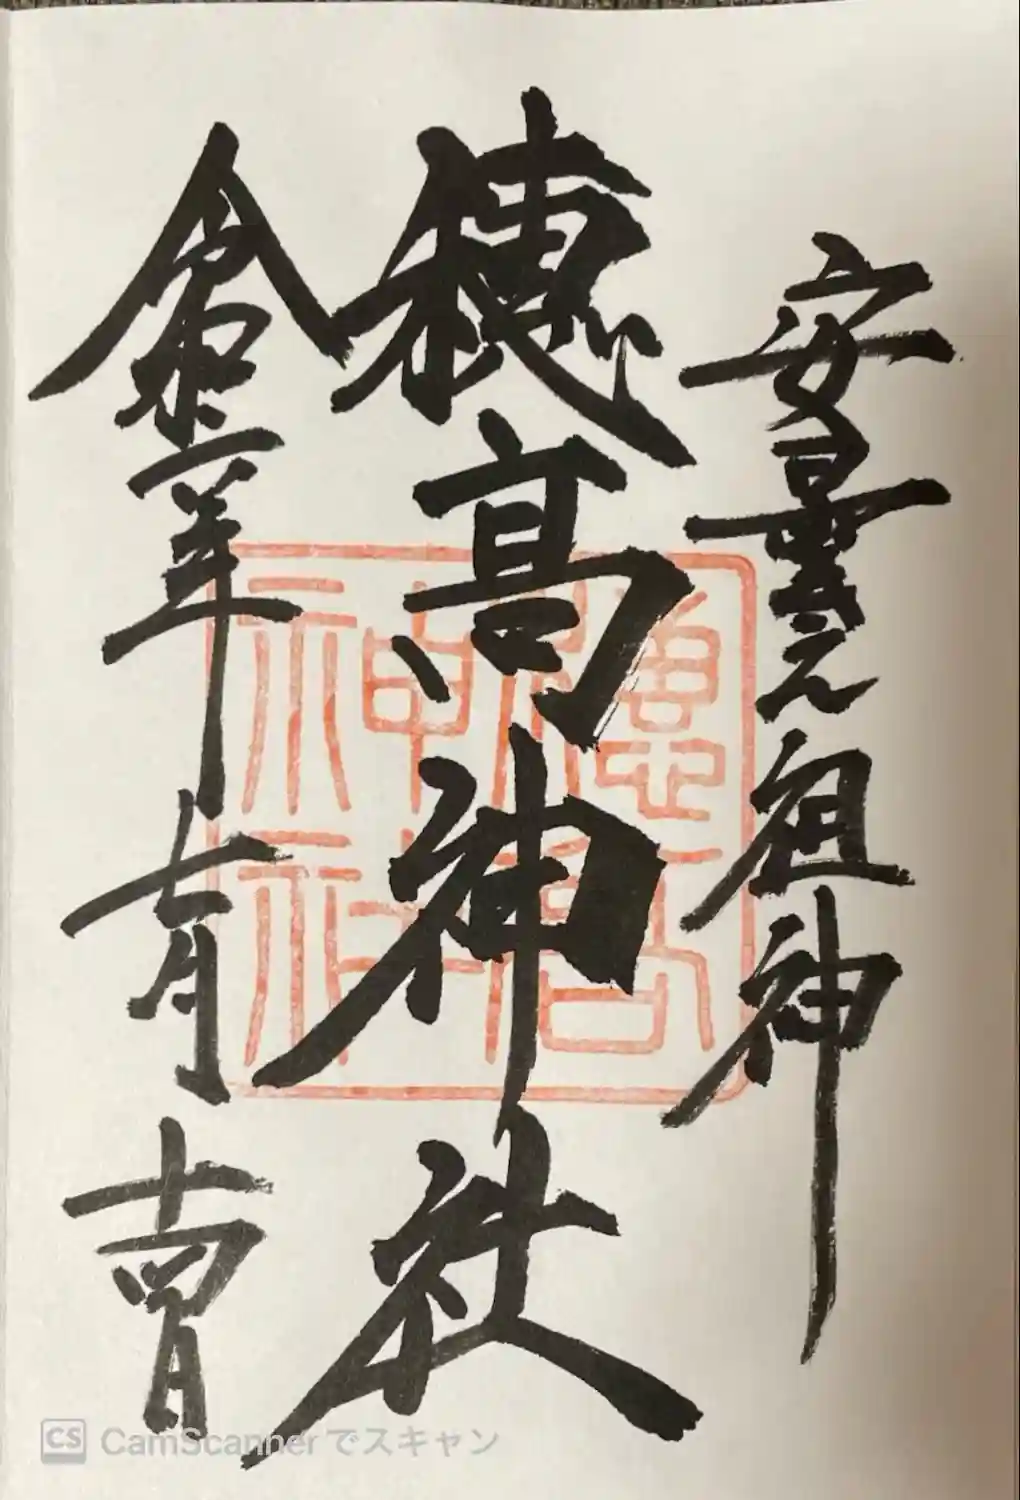 安曇之祖神
穂髙神社
令和二年七月十四日
穂高
神社
CS CamScannerでスキャン